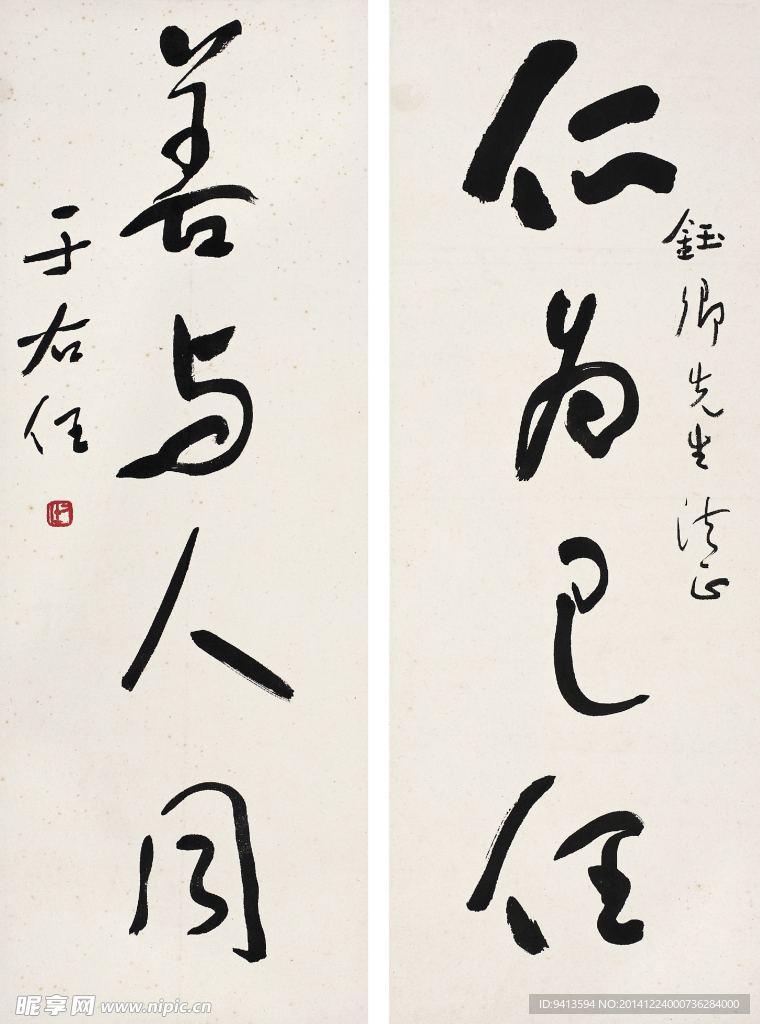 鈺卿先生法正
仁為己任
善与人同
于右任
昵享网 www.nipic.cn
ID:9413594 NO:20141224000736284000